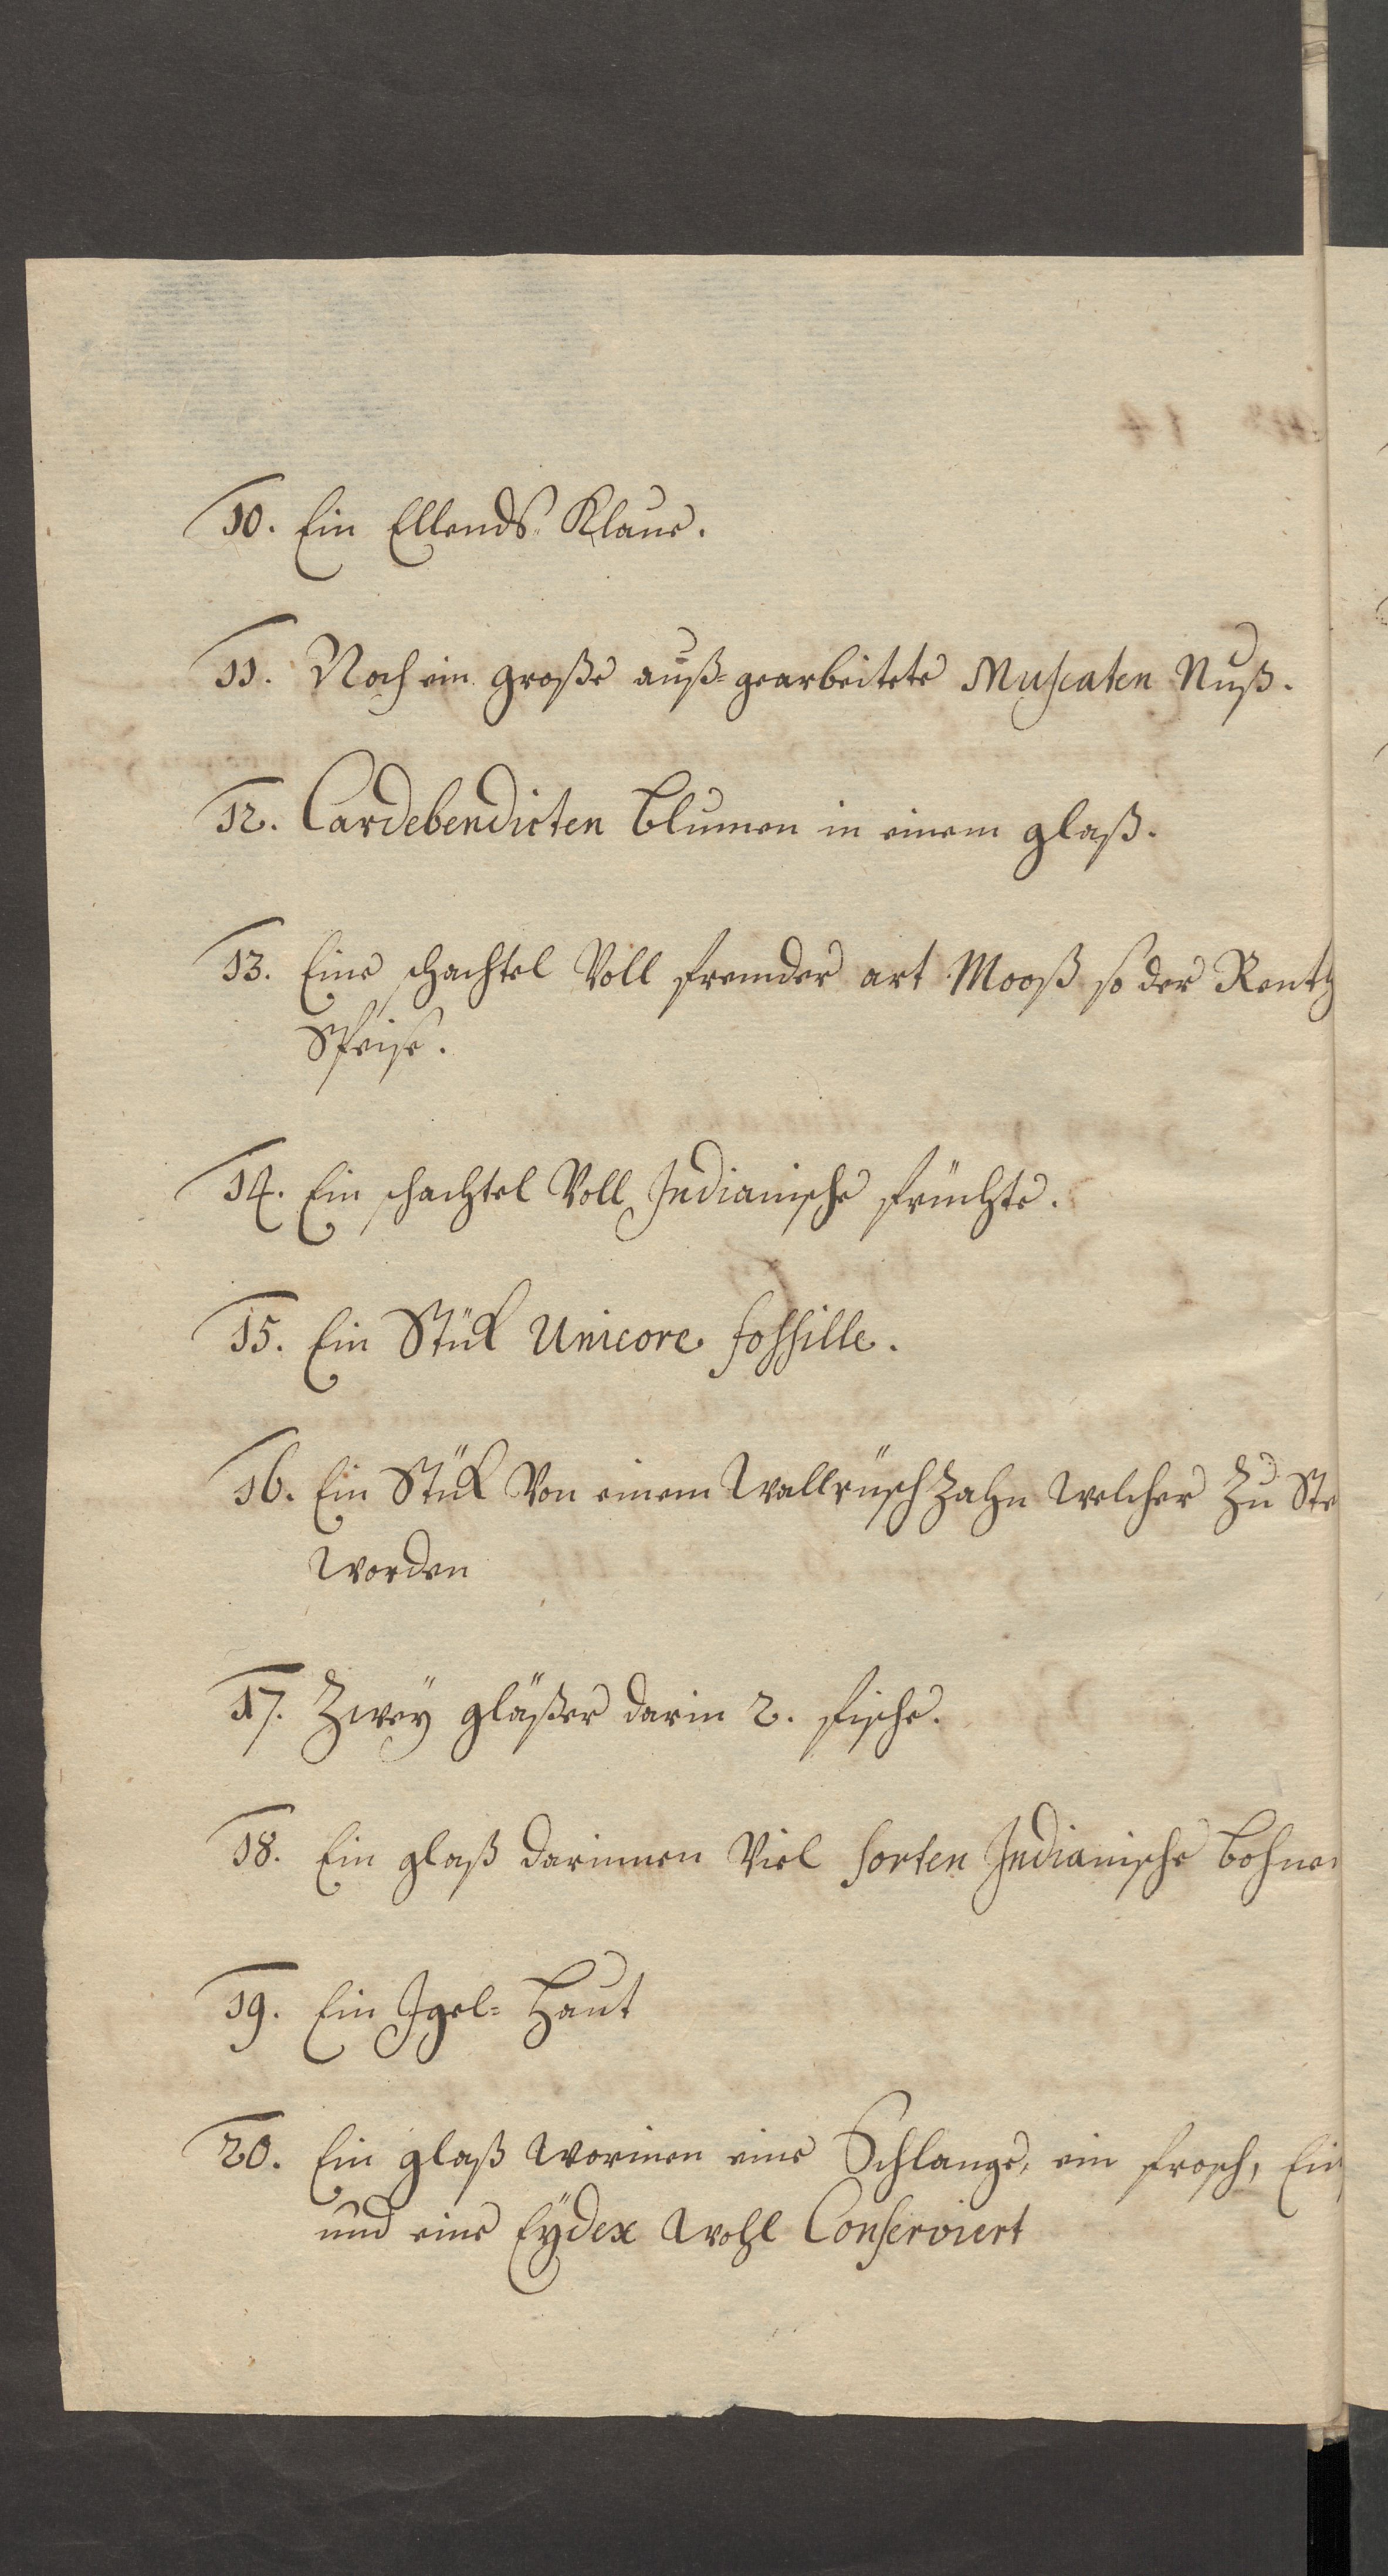 10. Ein Ellends Klaue.
11. Noch ein große auß=gearbeitete Muscaten Nuß.
12. Cardebendicten blumen in einem glaß.
13. Eine schachtel Voll frembder art Mooß so der Rentz
Speise.
14. Ein schachtel Voll Indianische früchte.
15. Ein Stük Unicore fossille.
16. Ein Stük Von einem Wallrüsch Zahn welcher zu Ste
worden
17. Zweÿ gläßer darin 2. fische.
18. Ein glaß darinnen Viel sorten Indianische bohnen
19. Ein Igel= Haut
20. Ein glaß worinen eine Schlange, ein frosch, Ein
und eine Eÿdex wohl Conserviert